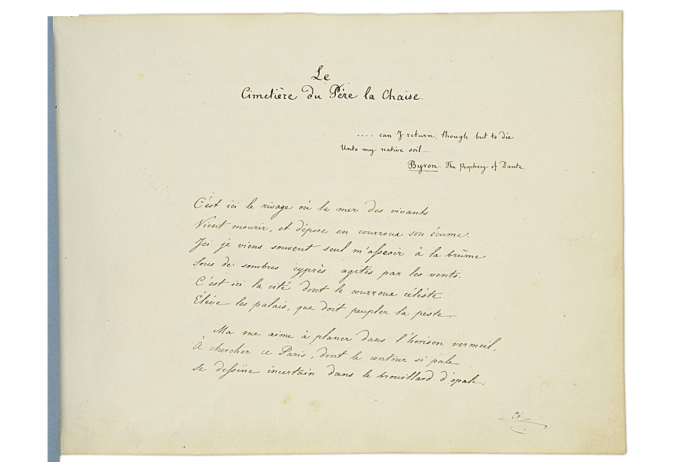 Le
Cimetière du Père la Chaise.
.... can I return, though but to die
Unto my native soil_
Byron. The prophecy of Dante.
C'est ici le rivage où la mer des vivants
Vient mourir, et dépose en courroux son écume.
Ici je viens souvent seul m'asseoir à la brûme
Sous de sombres cyprès agités par les vents.
C'est ici la cité dont le courroux céleste
Élève les palais, que doit peupler la peste.
Ma vue aime à planer dans l'horison vermeil,
À chercher ce Paris, dont le contour si pale
Se dessine incertain dans le brouillard d'opale,